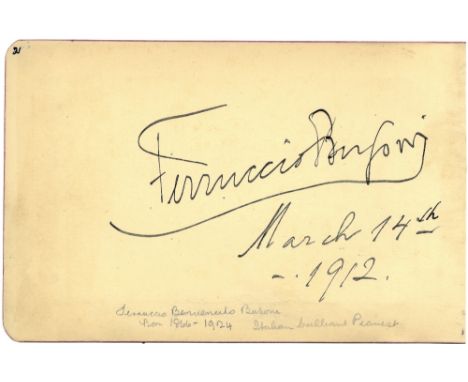 Ferruccio Busoni
March 14th
- . 1912.
Ferruccio Benvenuto Busoni
1866 - 1924 Italian brilliant Pianist